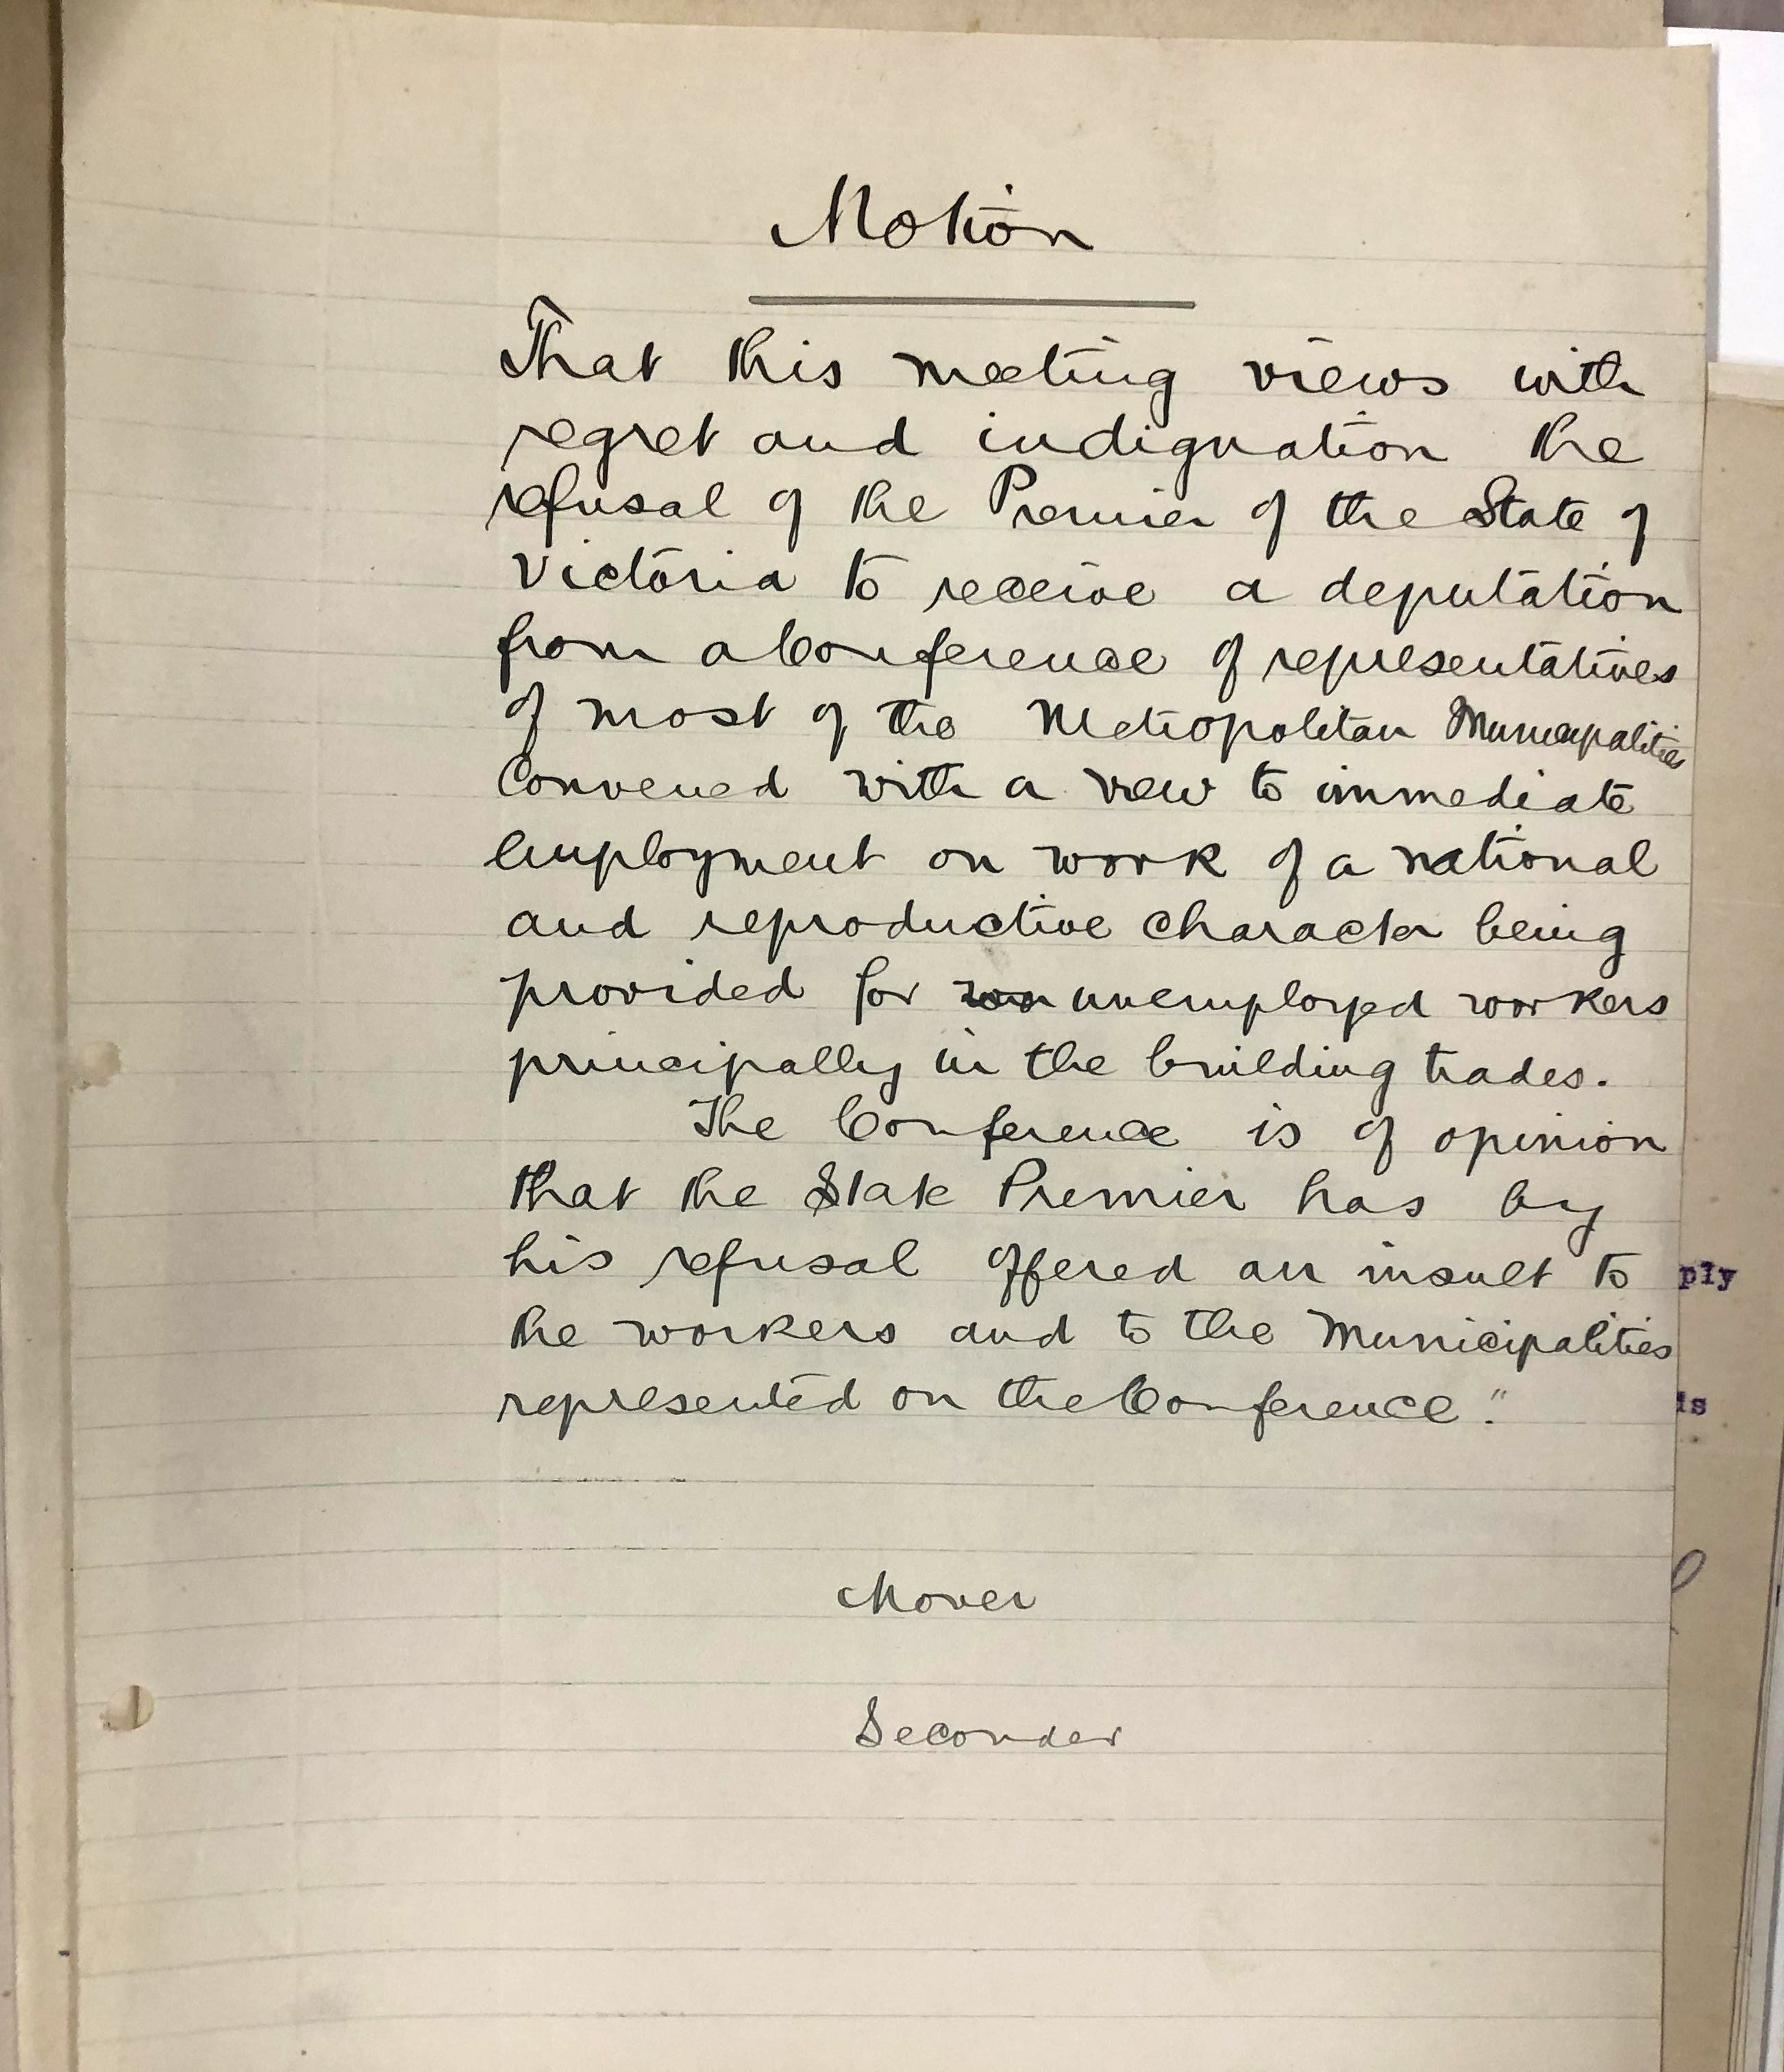 Motion
That this meeting views with
regret and indignation the
refusal of the Premier of the State of
Victoria to receive a deputation
from a Conference of representatives
of most of the Metropolitan Municipalities
Convened with a view to immediate
employment on work of a national
and reproductive character being
provided for unemployed workers
principally in the building trades.
The Conference is of opinion
that the State Premier has by
his refusal offered an insult to
the workers and to the Municipalities
represented on the Conference."
Mover
Seconder
ply
is